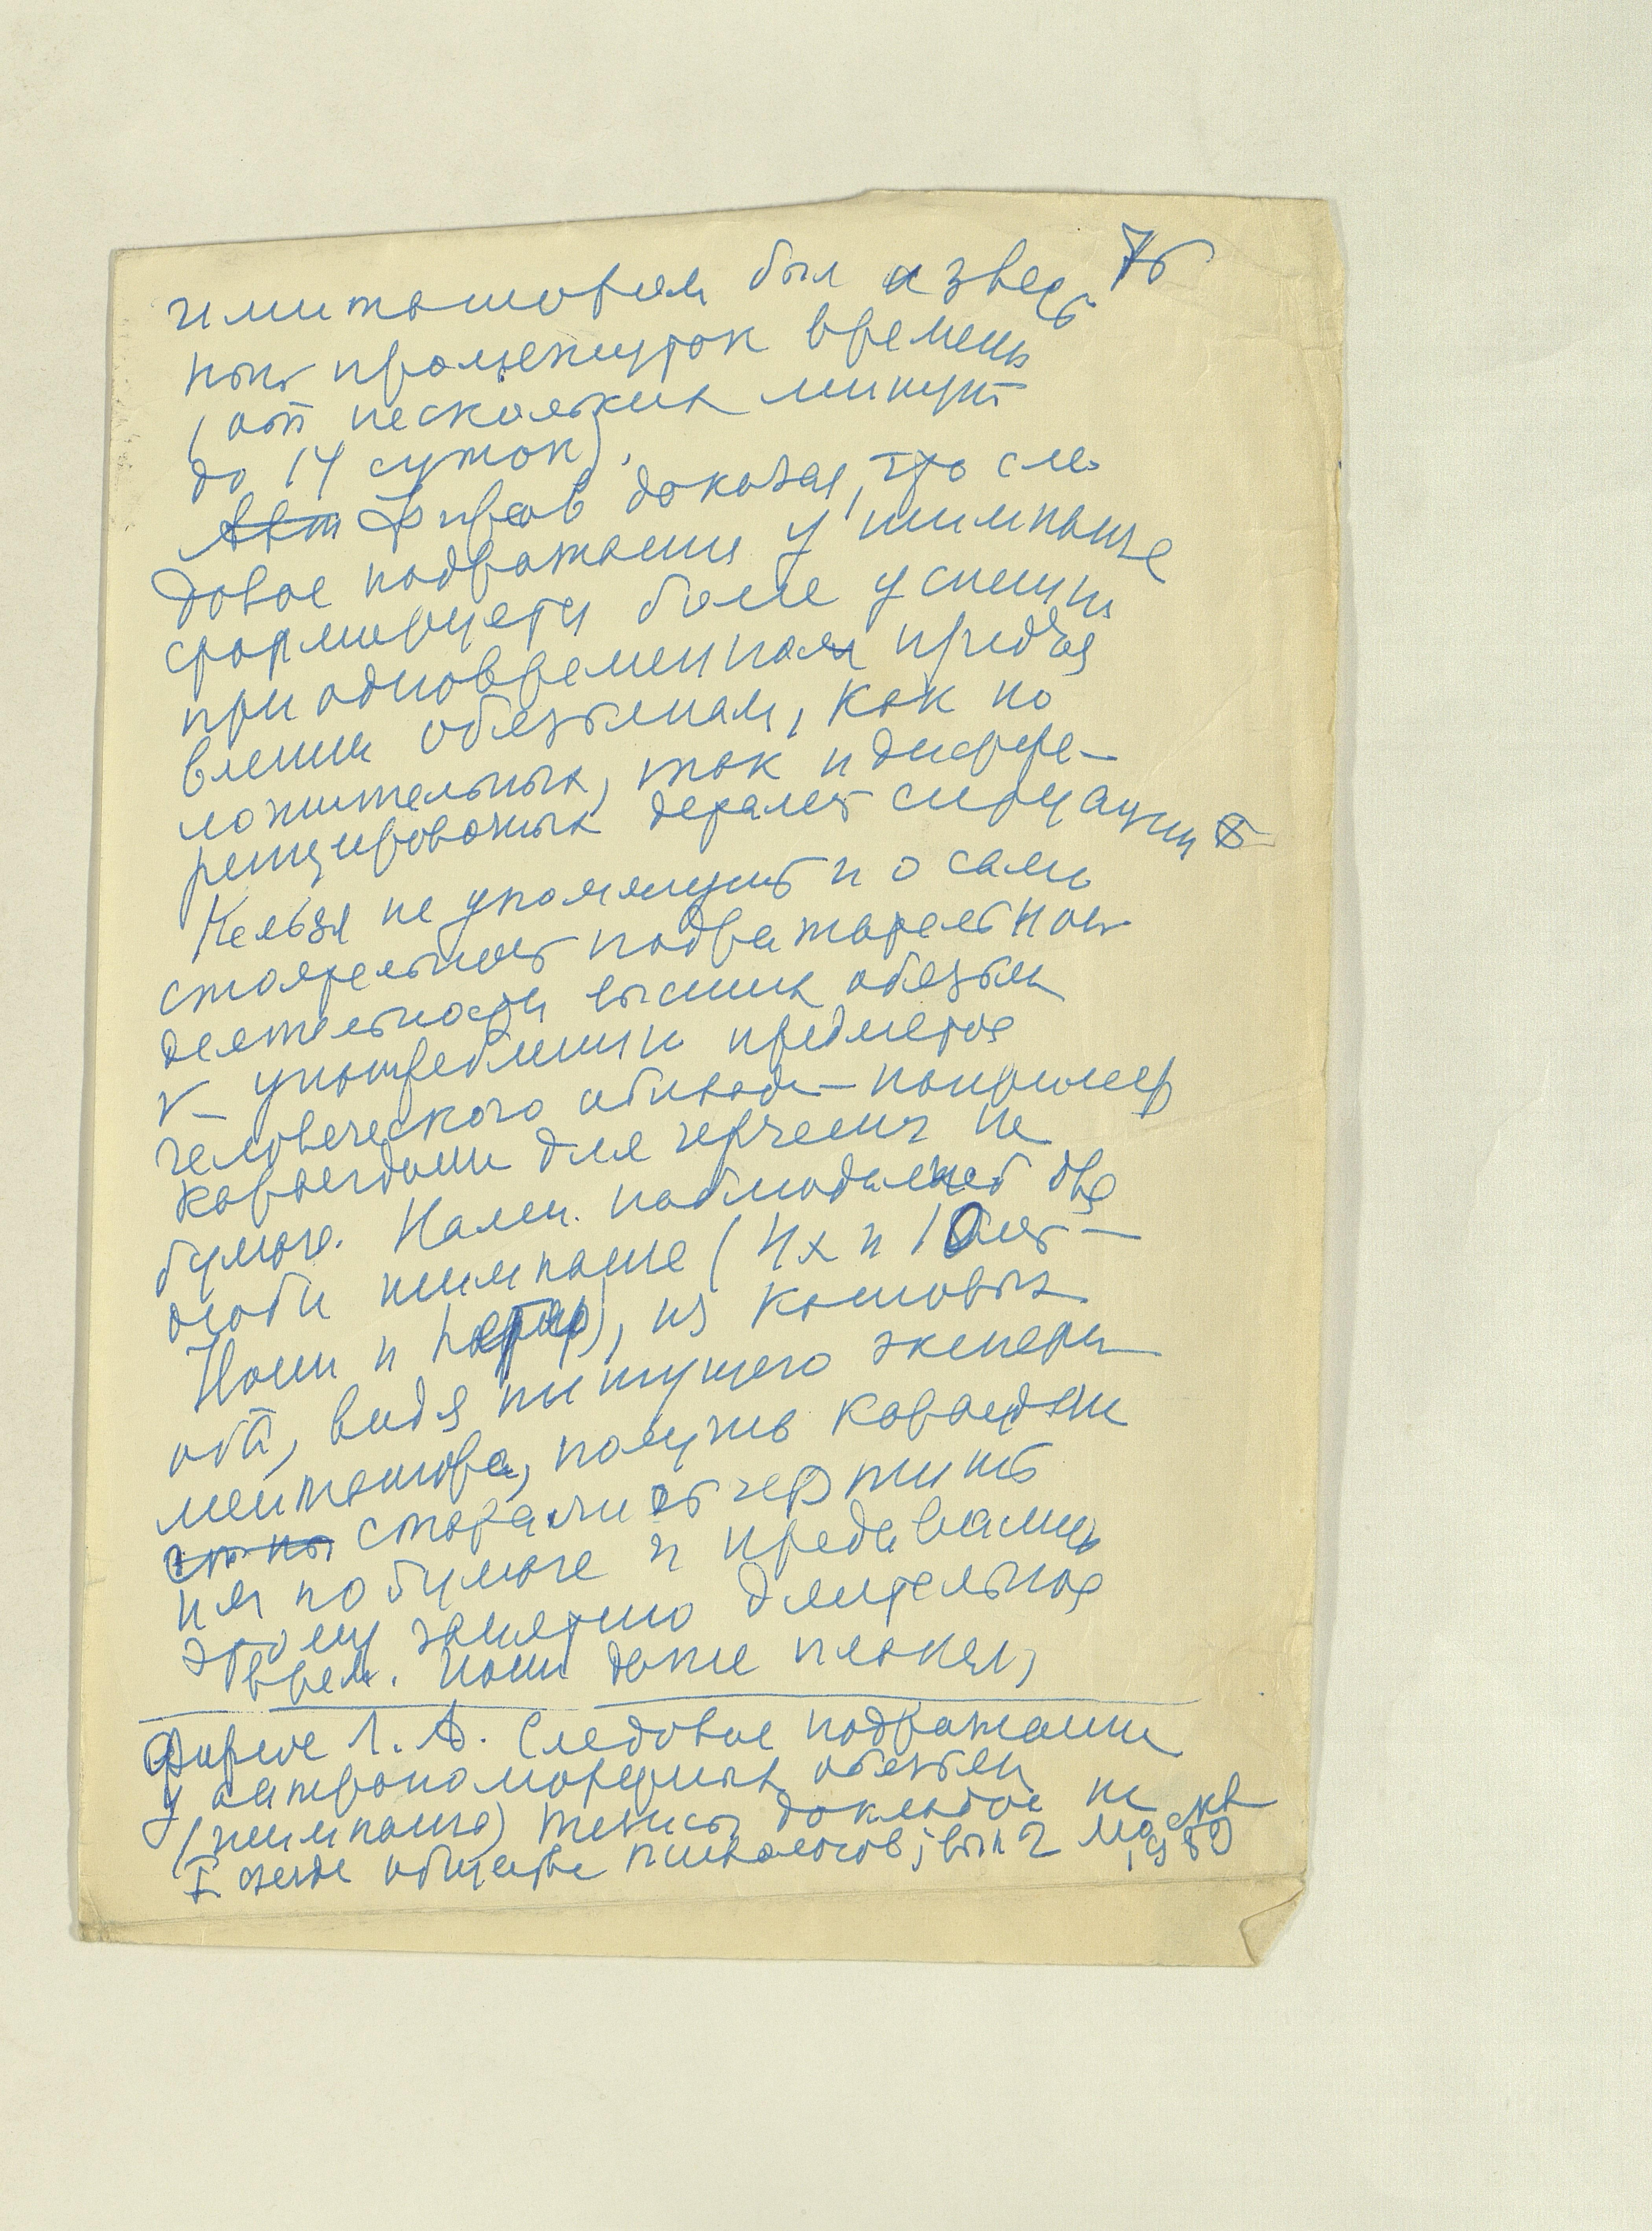 7б
имитатором был извест
ный промежуток времени
(от нескольких минут
до 14 суток).
Авт Фирсов доказал, что сле
довое подражание у шимпанзе
формируется более успешно
при одновременном предъя
влении обезьянам, как по
ложительных, так и диффе-
ренцировочных деталей ситуации
Нельзя не упомянуть и о само
стоятельной подражательной
деятельности высших обезьян
в употреблении предметов
человеческого обихода — например
карандаши для черчения на
бумаге. Нами наблюдались две
особи шимпанзе (4х и 10 лет —
Иони и Петер), из которых
оба, видя пишущего экспери
ментатора, получив карандаши
старались чертить
им по бумаге и предавались
этому занятию длительное
врем. Иони даже плакал,
Фирсов Л. А. Следовое подражание
у антропоморфных обезьян
(шимпанзе) тезисы докладов на
I съезде общества психологов, вып 2 Москва
1959